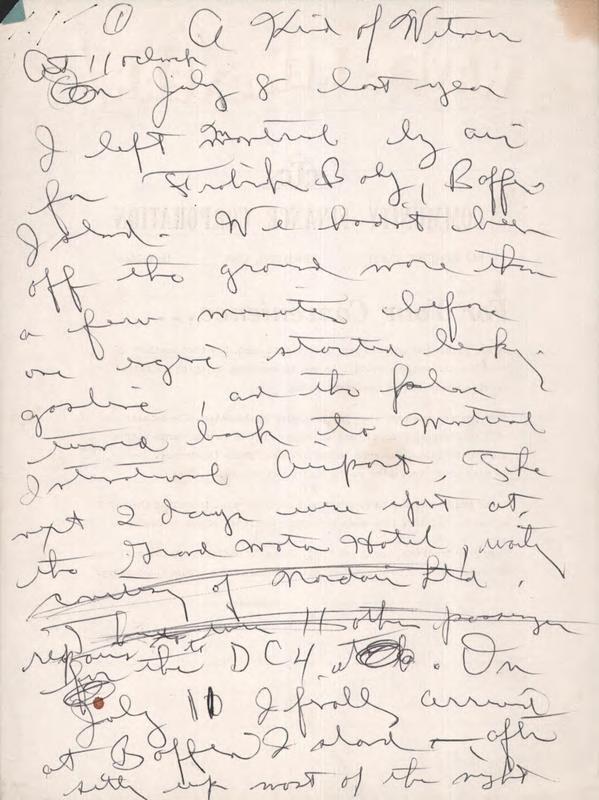 ① A Kind of Witness
At 11 o'clock
On July 8 last year
I left Montreal by air
for Frobisher Bay, Baffin
Island. We hadn't been
off the ground more than
a few minutes before
one engine started leaking
gasoline, and the plane
turned back to Montreal
International Airport. The
next 2 days were spent at
the Grand Motor Hotel, waiting
courtesy of Nordair Ltd.
11 other passengers
repairs to
for the DC4. On
July 11 I finally arrived
at Baffin Island — after
sitting up most of the night